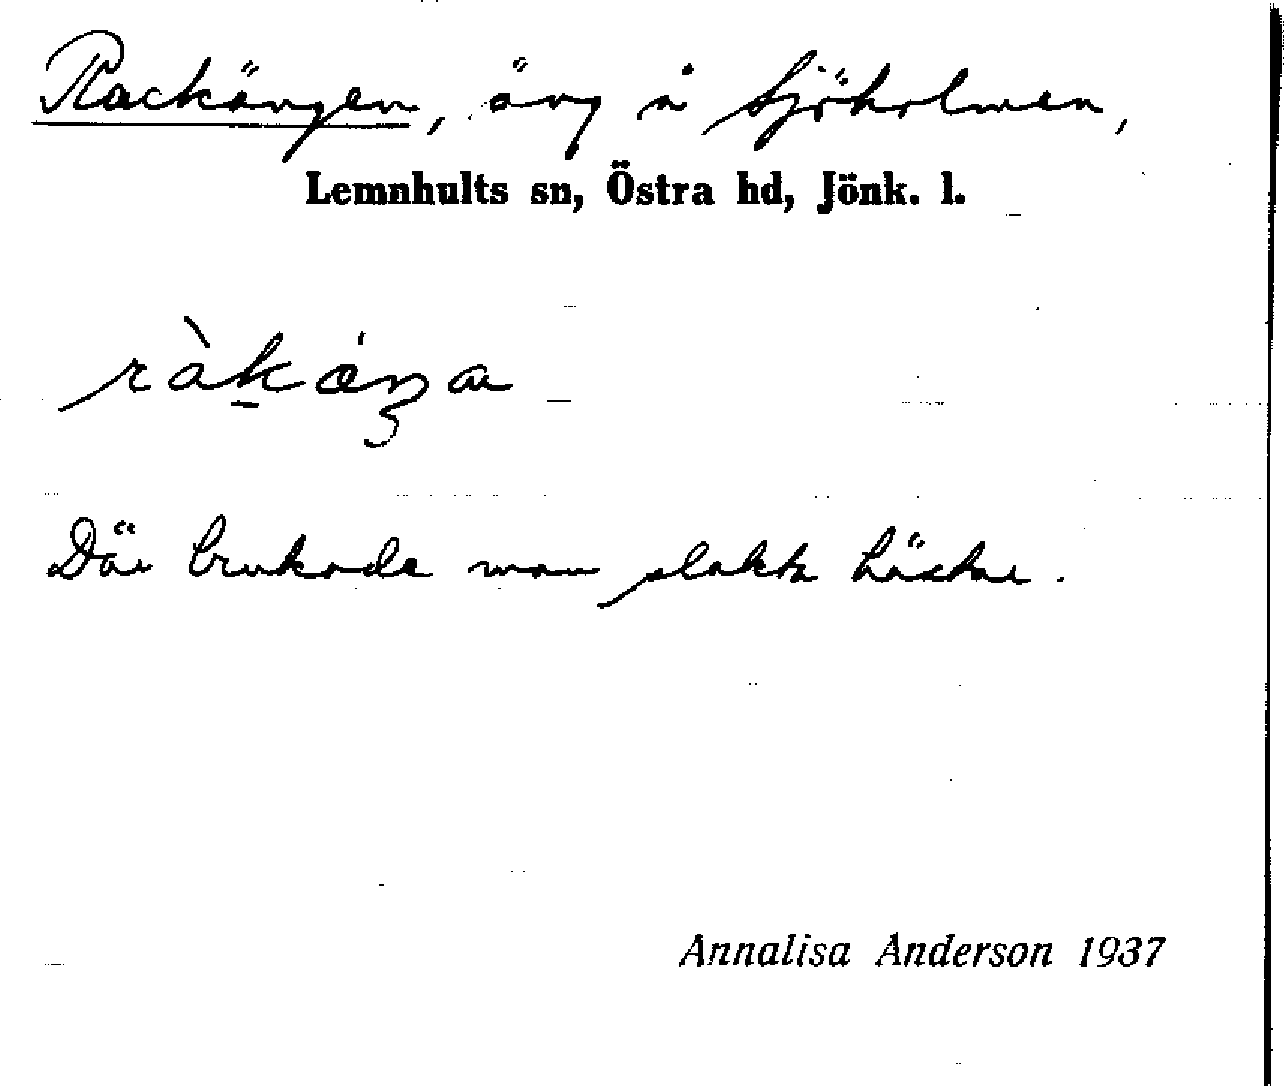 Rackängen, äng å Sjöholmen,
Lemnhults sn, Östra hd, Jönk. l.
ràkáŋa
Där brukade man slakta hästar.
Annalisa Anderson 1937